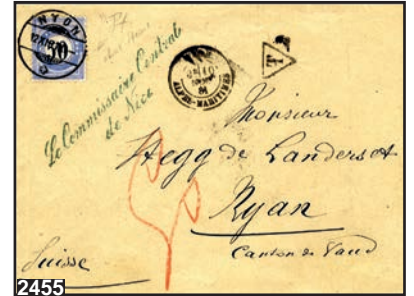 NYON
50
T
Le Commissaire Central
de Nice
ALPES-MARITIMES
Monsieur
Hegg de Landerset
Ryan
Canton de Vaud
Suisse
50
2455